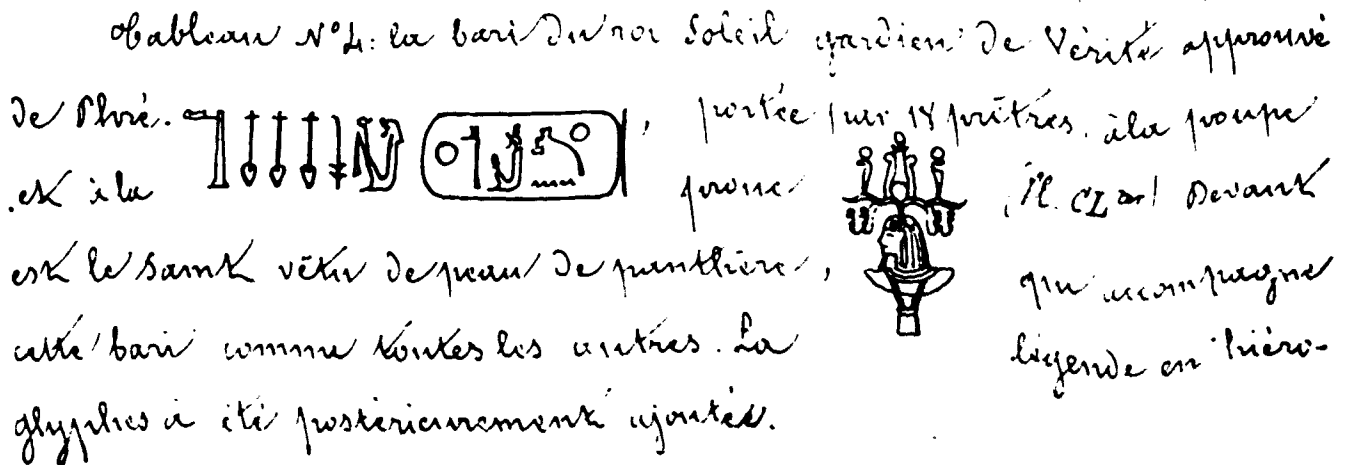 Tableau N° 4: la bari du roi Soleil gardien de Vérité approuvé
de Phré. , portée par 18 prêtres. à la poupe
et à la proue Pl. CL Devant
est le Samt vêtu de peau de panthère, qui accompagne
cette bari comme toutes les autres. La légende en hiéro-
glyphes a été postérieurement ajoutée.